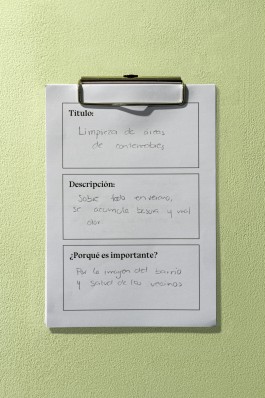 Título:
Limpieza de áreas
de contenedores
Descripción:
Sobre todo en verano,
se acumula basura y mal
olor
¿Porqué es importante?
Por la imagen del barrio
y salud de los vecinos